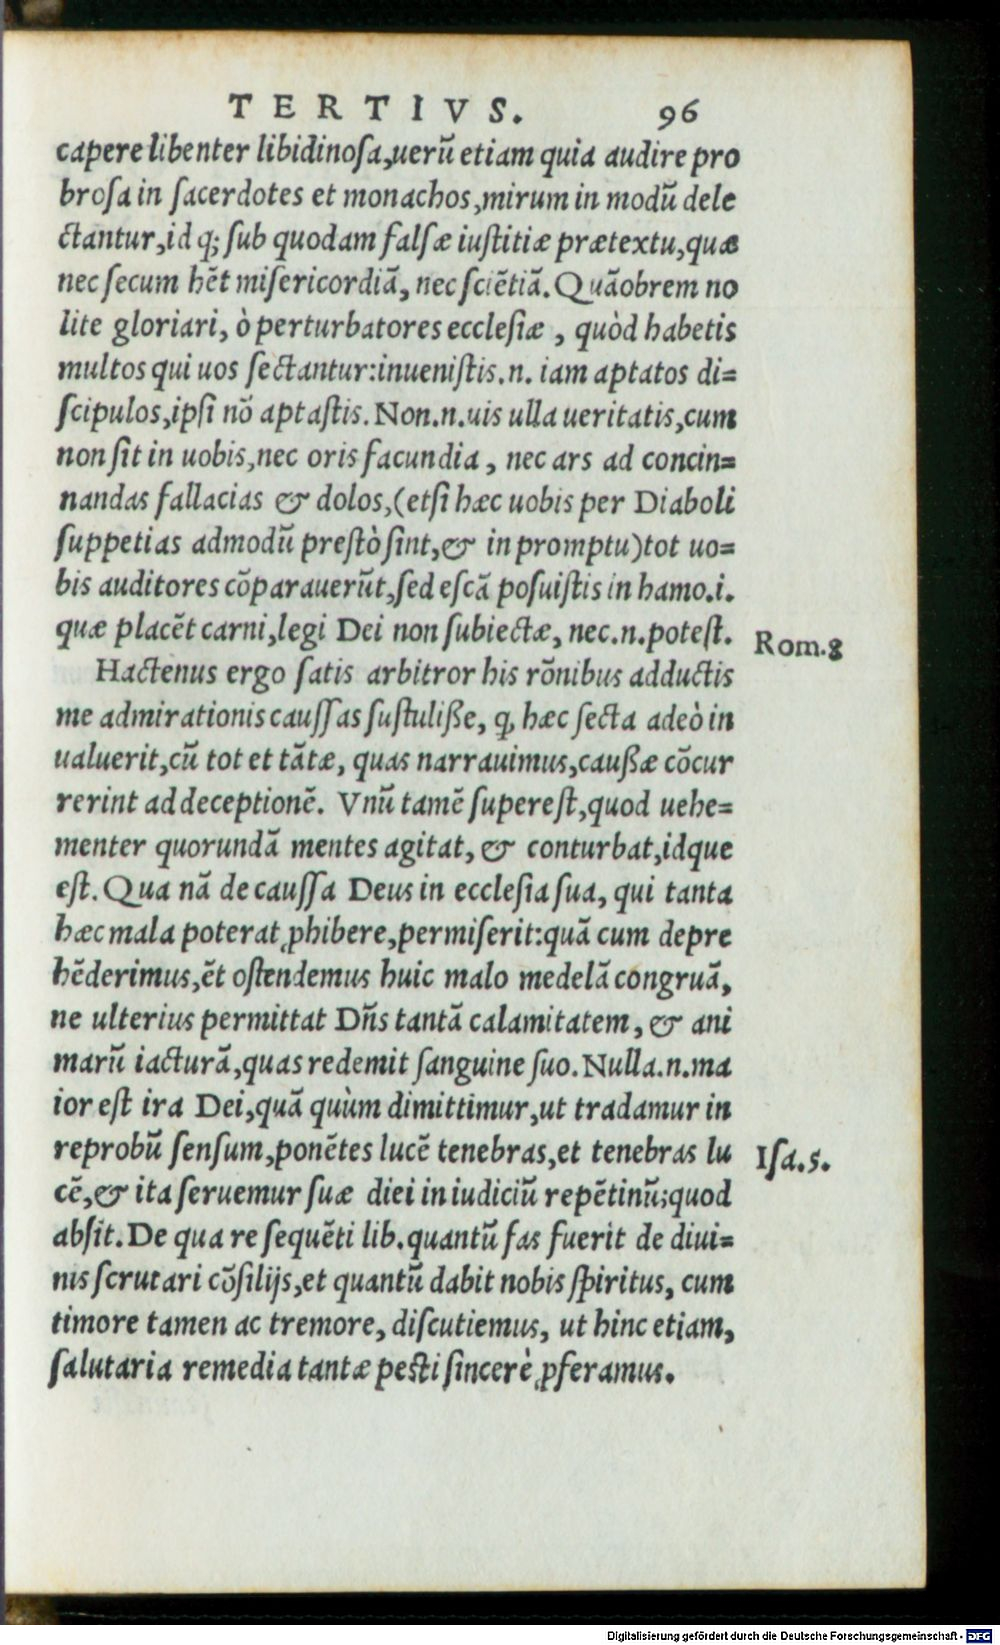 TERTIVS. 96
capere libenter libidinoſa,uerũ etiam quia audire pro
broſa in ſacerdotes et monachos,mirum in modũ dele
ctantur,id q; ſub quodam falſæ iuſtitiæ prætextu,quæ
nec ſecum hẽt miſericordiã, nec ſciẽtiã. Quãobrem no
lite gloriari, ò perturbatores eccleſiæ , quòd habetis
multos qui uos ſectantur:inueniſtis.n. iam aptatos di=
ſcipulos,ipſi nõ aptaſtis. Non.n.uis ulla ueritatis,cum
non ſit in uobis,nec oris facundia , nec ars ad concin=
nandas fallacias & dolos,(etſi hæc uobis per Diaboli
ſuppetias admodũ preſtò ſint,& in promptu)tot uo=
bis auditores cõparauerũt,ſed eſcã poſuiſtis in hamo.i.
quæ placẽt carni,legi Dei non ſubiectæ, nec.n.poteſt.
Rom.8
Hactenus ergo ſatis arbitror his rõnibus adductis
me admirationis cauſſas ſuſtuliße, ꝙ hæc ſecta adeò in
ualuerit,cũ tot et tãtæ, quas narrauimus,caußæ cõcur
rerint ad deceptionẽ. Vnũ tamẽ ſupereſt,quod uehe=
menter quorundã mentes agitat, & conturbat,idque
eſt. Qua nã de cauſſa Deus in eccleſia ſua, qui tanta
hæc mala poterat ꝓhibere,permiſerit:quã cum depre
hẽderimus,ẽt oſtendemus huic malo medelã congruã,
ne ulterius permittat Dñs tantã calamitatem, & ani
marũ iacturã,quas redemit ſanguine ſuo. Nulla.n.ma
ior eſt ira Dei,quã quùm dimittimur,ut tradamur in
reprobũ ſenſum,ponẽtes lucẽ tenebras,et tenebras lu
Iſa.5.
cẽ,& ita ſeruemur ſuæ diei in iudiciũ repẽtinũ;quod
abſit. De qua re ſequẽti lib.quantũ fas fuerit de diui=
nis ſcrutari cõſilijs,et quantũ dabit nobis ſpiritus, cum
timore tamen ac tremore, diſcutiemus, ut hinc etiam,
ſalutaria remedia tantæ peſti ſincerè ꝓferamus.
Digitalisierung gefördert durch die Deutsche Forschungsgemeinschaft - DFG